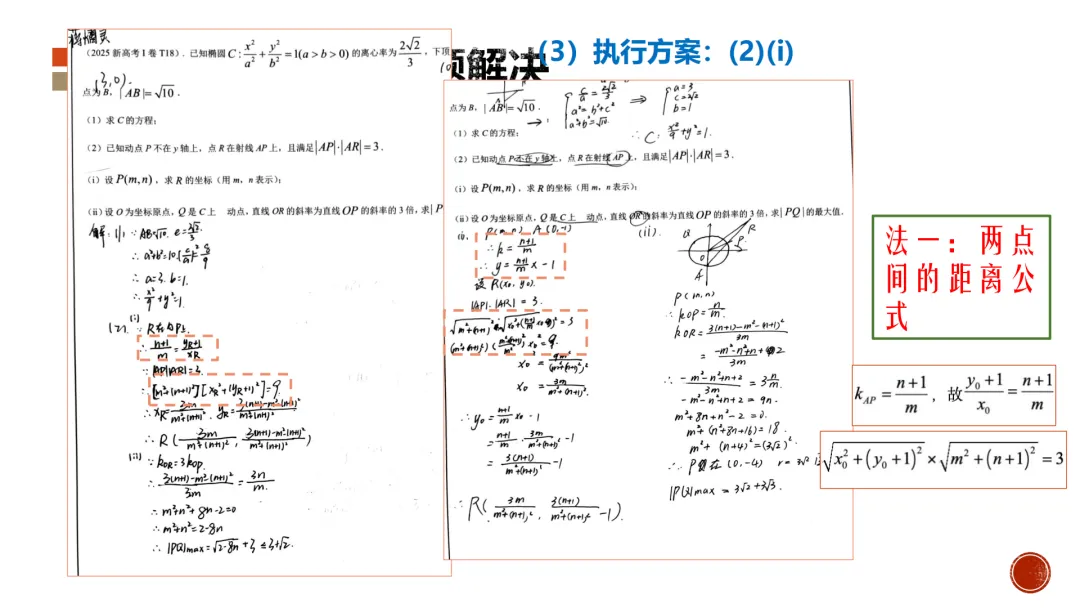 (3) 执行方案：(2)(i)
(2025 新高考 1 卷 T18). 已知椭圆 C: x²/a² + y²/b² = 1(a > b > 0) 的离心率为 2√2/3 , 下顶
(3,0)
点为 B, |AB| = √10 .
(1) 求 C 的方程;
(2) 已知动点 P 不在 y 轴上, 点 R 在射线 AP 上, 且满足 |AP|·|AR| = 3 .
(i) 设 P(m,n) , 求 R 的坐标 (用 m, n 表示);
(ii) 设 O 为坐标原点, Q 是 C 上 动点, 直线 OR 的斜率为直线 OP 的斜率的 3 倍, 求|P
解: (1) ∵ AB=√10. e=2√2/3
∴ a=3. b=1.
∴ x²/9 + y²=1.
(2). (i)
∴ (n+1)/m = (yR+1)/xR
∵ |AP||AR|=3.
∴ [m²+(n+1)²][xR²+(yR+1)²]=9
∴ xR = 3m/(m²+(n+1)²) , yR = (3(n+1)-m²-(n+1)²)/(m²+(n+1)²)
∴ R ( 3m/(m²+(n+1)²) , (3(n+1)-m²-(n+1)²)/(m²+(n+1)²) )
(ii) ∵ kOR=3kOP.
∴ (3(n+1)-m²-(n+1)²)/3m = 3n/m.
∴ m²+n²+8n-2=0
∴ m²+n²=2-8n
点为 B, |AB| = √10 .
c/a = 2√2/3
a²=b²+c²
a²+b²=√10.
⇒
a=3
c=2√2
b=1
(1) 求 C 的方程;
∴ C: x²/9 + y²=1.
(2) 已知动点 P 不在 y 轴上, 点 R 在射线 AP 上, 且满足 |AP|·|AR| = 3 .
(i) 设 P(m,n) , 求 R 的坐标 (用 m, n 表示);
(ii) 设 O 为坐标原点, Q 是 C 上 动点, 直线 OR 的斜率为直线 OP 的斜率的 3 倍, 求 |PQ| 的最大值.
P(m,n) A(0,-1)
∴ k = (n+1)/m
∴ y = (n+1)/m x - 1
设 R(x₀, y₀).
|AP|·|AR| = 3.
x₀ = 3m/(m²+(n+1)²).
∴ y₀ = (n+1)/m x₀ - 1
= (n+1)/m · 3m/(m²+(n+1)²) - 1
= 3(n+1)/(m²+(n+1)²) - 1
∴ R( 3m/(m²+(n+1)²) , 3(n+1)/(m²+(n+1)²) - 1).
(ii).
P(m,n)
∴ kOP = n/m.
kOR = (3(n+1)-m²-(n+1)²)/3m
∴ (-m²-n²+n+2)/3m = 3 n/m
-m²-n²+n+2 = 9n.
m²+8n+n²-2=0.
m²+(n²+8n+16)=18.
m²+(n+4)²=(3√2)².
|PQ|max = 3√2+3√3.
法一：两点
间的距离公
式
k_AP = (n+1)/m , 故 (y₀+1)/x₀ = (n+1)/m
√(x₀²+(y₀+1)²) × √(m²+(n+1)²) = 3